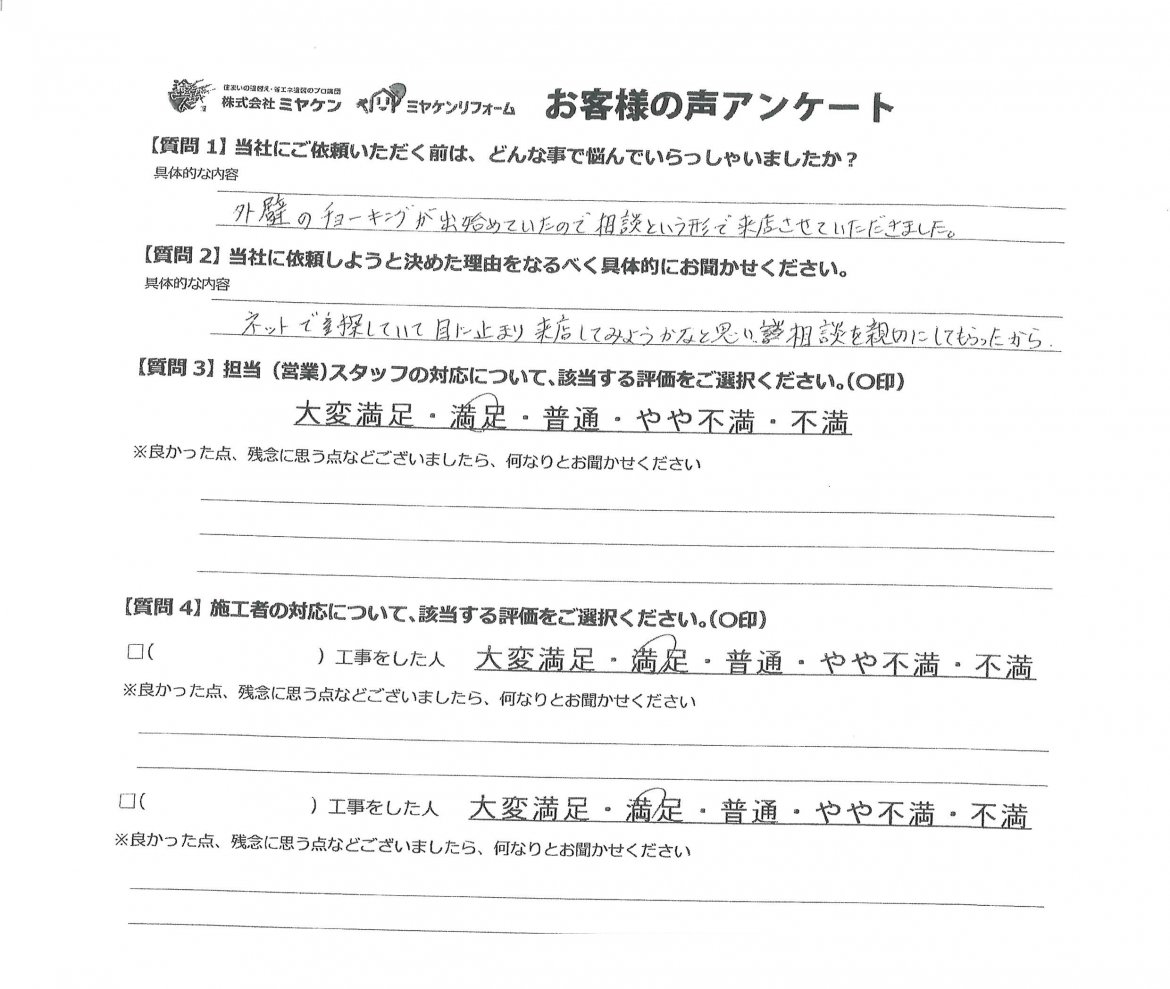 住まいの塗替え・省エネ塗装のプロ集団
株式会社ミヤケン ミヤケンリフォーム お客様の声アンケート
【質問 1】当社にご依頼いただく前は、どんな事で悩んでいらっしゃいましたか？
具体的な内容
外壁のチョーキングが出始めていたので相談という形で来店させていただきました。
【質問 2】当社に依頼しようと決めた理由をなるべく具体的にお聞かせください。
具体的な内容
ネットで探していて目に止まり来店してみようかなと思い、相談を親切にしてもらったから.
【質問 3】担当（営業）スタッフの対応について、該当する評価をご選択ください。（〇印）
大変満足・満足・普通・やや不満・不満
※良かった点、残念に思う点などございましたら、何なりとお聞かせください
【質問 4】施工者の対応について、該当する評価をご選択ください。（〇印）
□（ ）工事をした人 大変満足・満足・普通・やや不満・不満
※良かった点、残念に思う点などございましたら、何なりとお聞かせください
□（ ）工事をした人 大変満足・満足・普通・やや不満・不満
※良かった点、残念に思う点などございましたら、何なりとお聞かせください